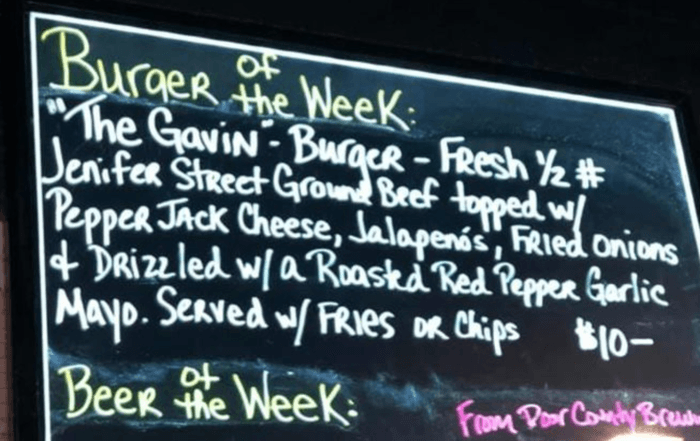 Burger of the Week:
"The Gavin" - Burger - Fresh ½ #
Jenifer Street Ground Beef topped w/
Pepper Jack Cheese, Jalapenós, Fried Onions
& Drizzled w/ a Roasted Red Pepper Garlic
Mayo. Served w/ Fries or Chips $10-
Beer of the Week:
From Door County Brew